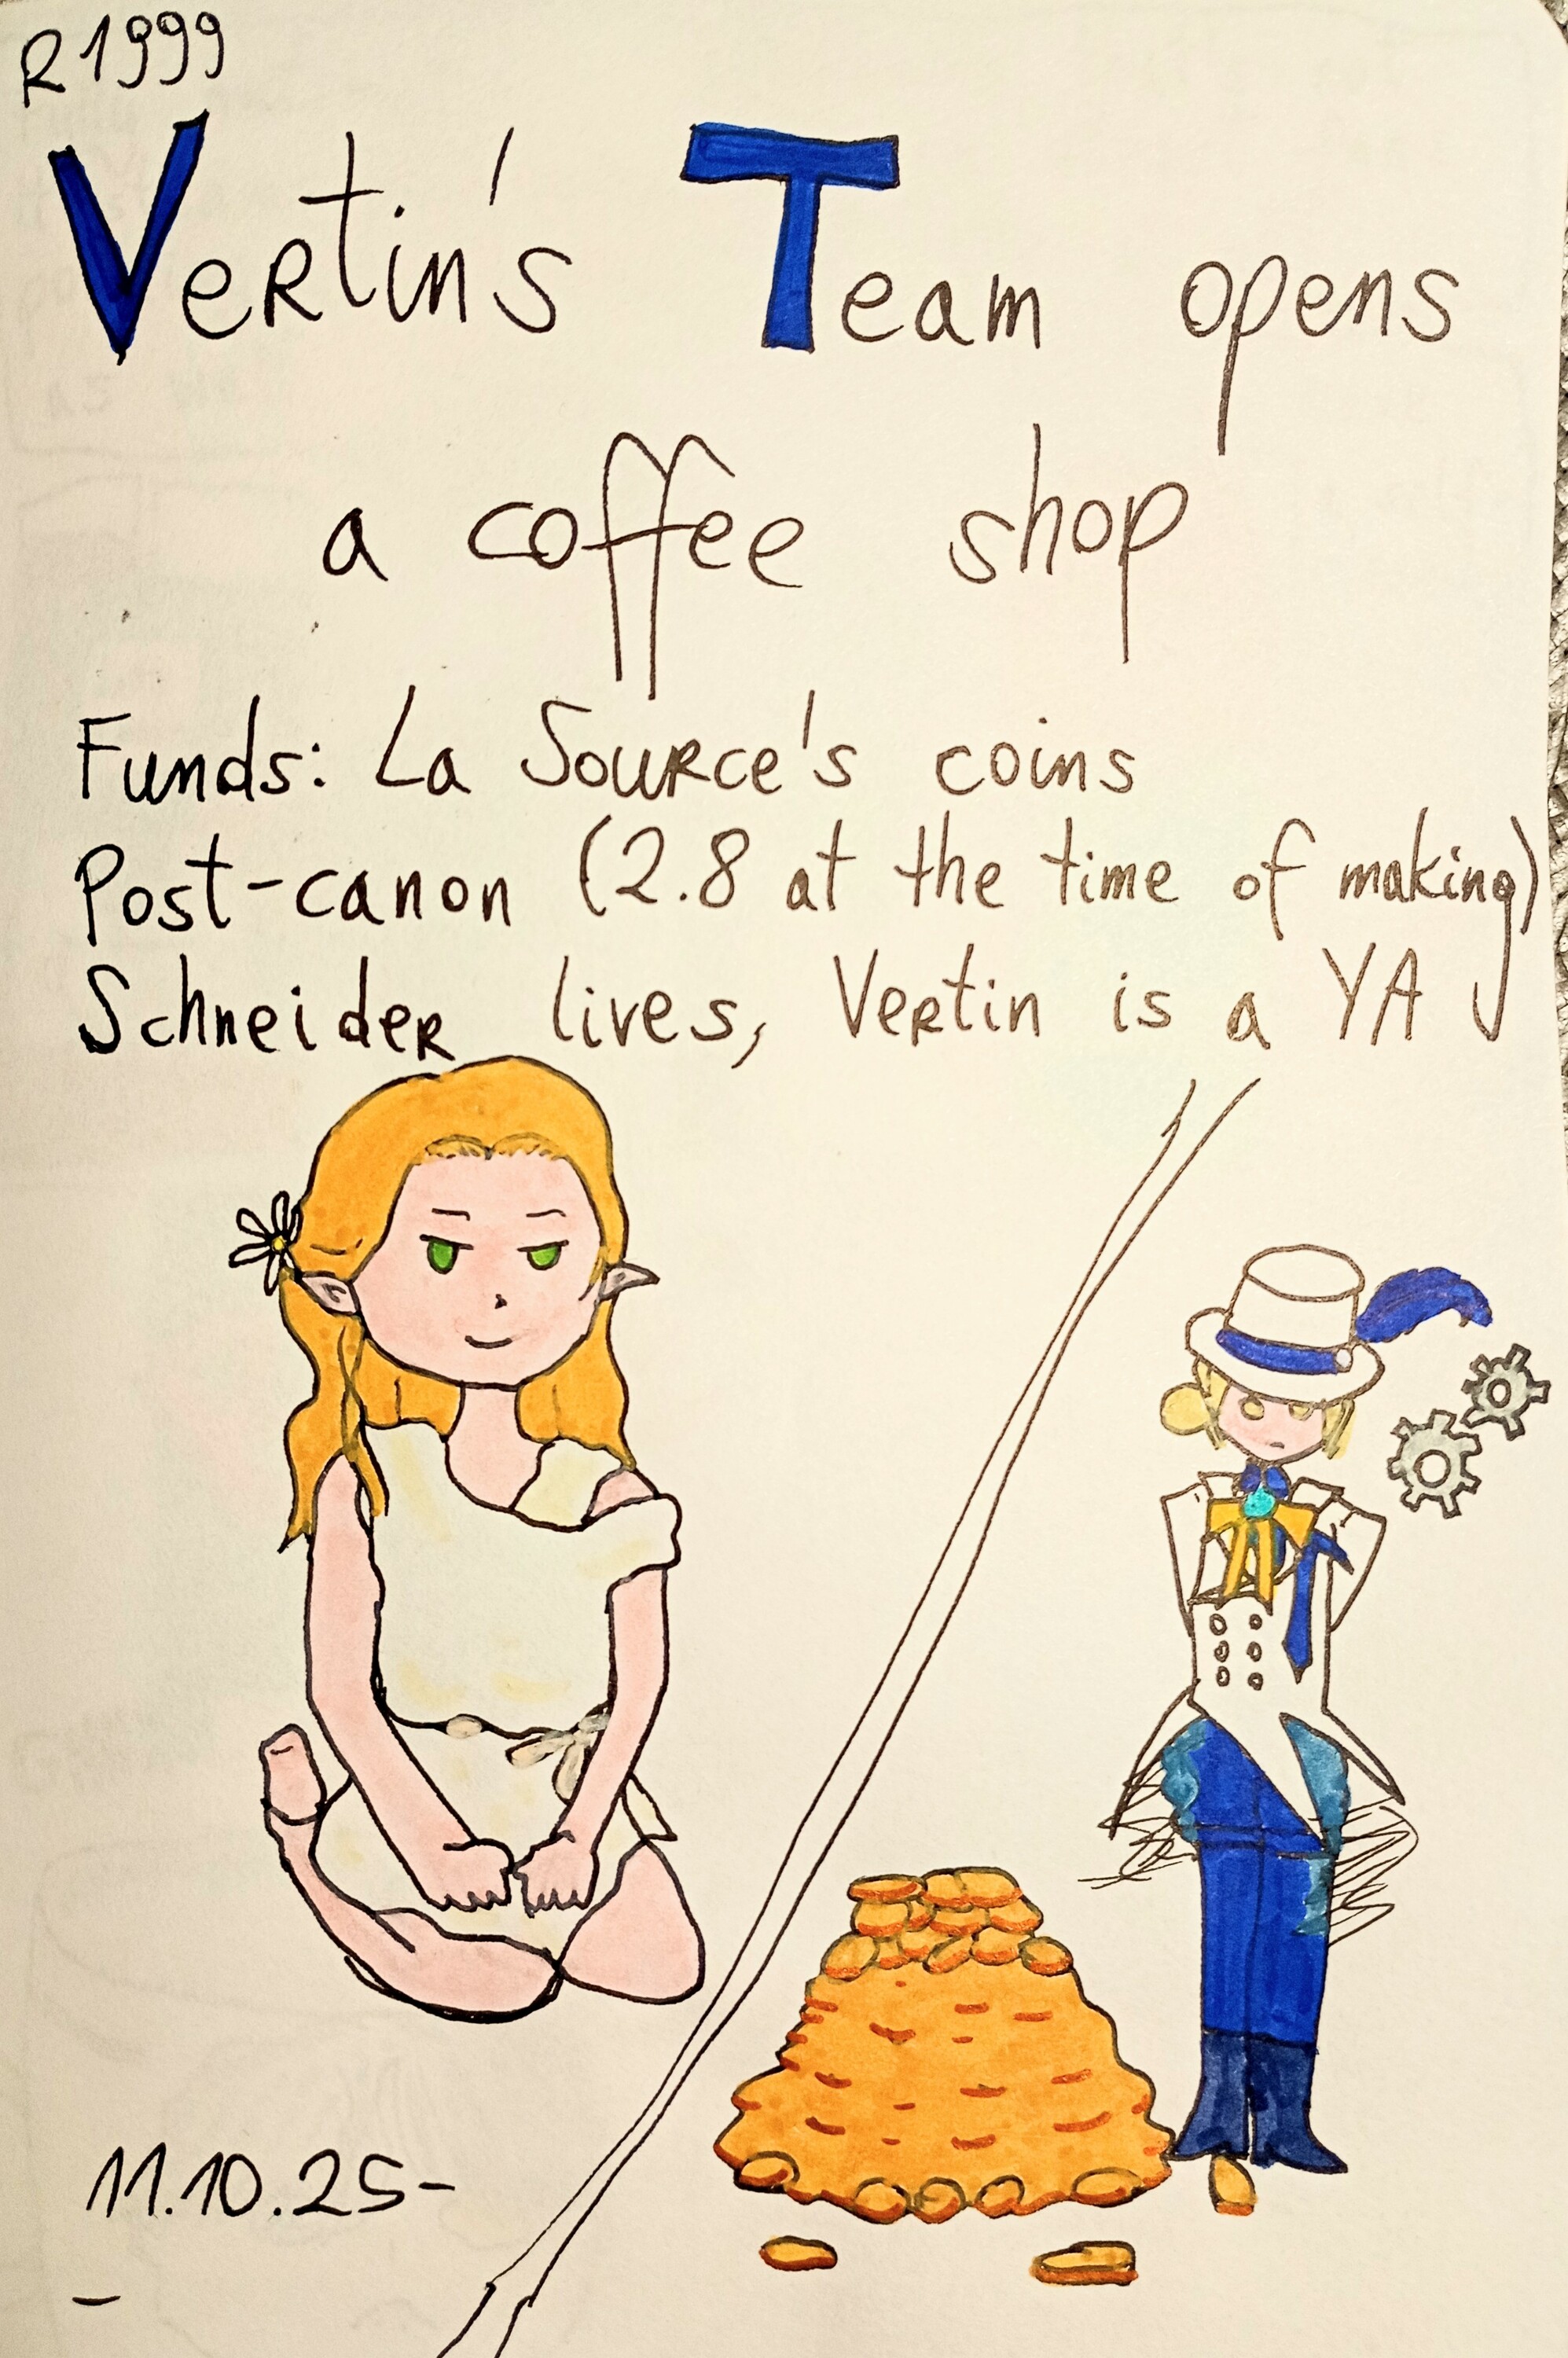 R1999
Vertin's Team opens
a coffee shop
Funds: La Source's coins
Post-canon (2.8 at the time of making)
Schneider lives, Vertin is a YA
11.10.25-
-